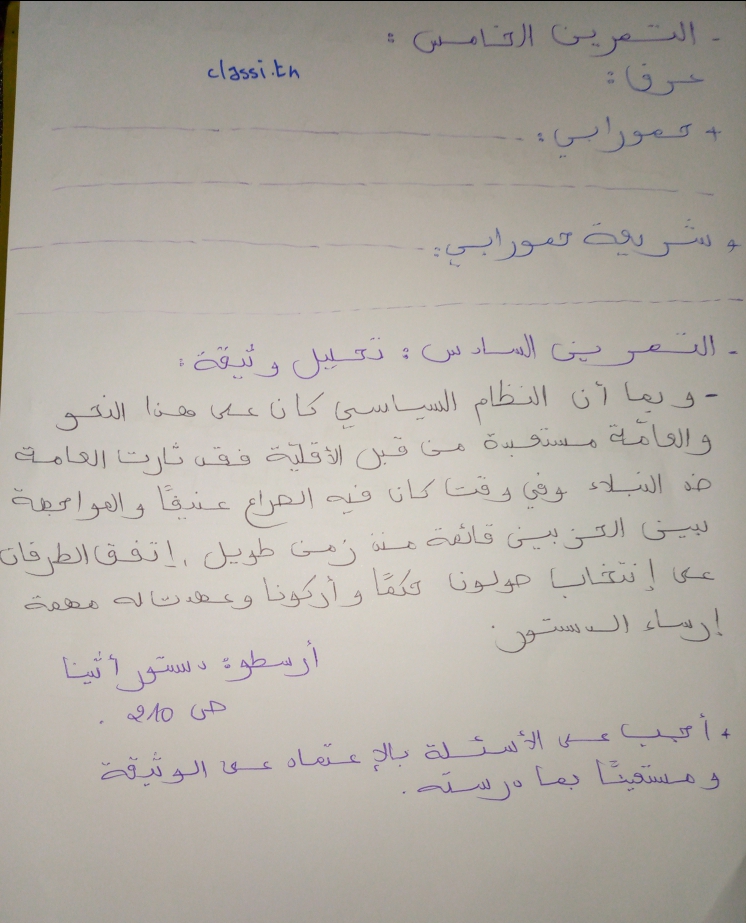 - التمرين الخامس :
classi.tn
عرف :
+ حمورابي :
+ شريعة حمورابي :
- التمرين السادس : تحليل وثيقة :
- و بما أن النظام السياسي كان على هذا النحو
والعامّة مستعبدة من قبل الأقليّة فقد ثارت العامة
ضد النبلاء وفي وقت كان فيه الصراع عنيفًا والمواجهة
بين الحزبين قائمة منذ زمن طويل , إتفق الطرفان
على إنتخاب صولون حكمًا و أركونا وعهدت له مهمة
إرساء الدستور.
أرسطو : دستور أثينا
ص 210 .
+ أجب على الأسئلة بالإعتماد على الوثيقة
و مستعينًا بما درسته .